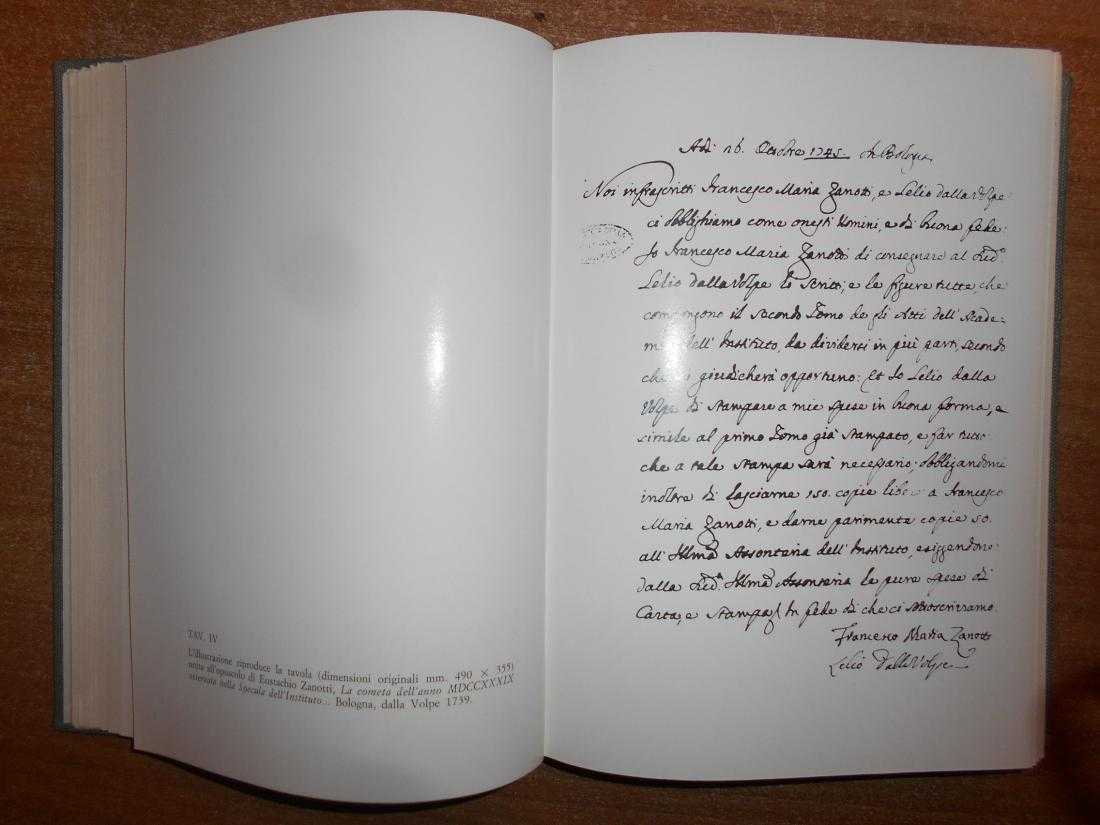 TAV. IV
L'illustrazione riproduce la tavola (dimensioni originali mm. 490 × 355)
unita all'opuscolo di Eustachio Zanotti, La cometa dell'anno MDCCXXXIX
osservata nella Specula dell'Instituto... Bologna, dalla Volpe 1739.
Adì 26. Ottobre 1745. In Bologna
Noi infrascritti Francesco Maria Zanotti, e Lelio dalla Volpe
ci obblighiamo come onesti Uomini, e di buona fede:
Io Francesco Maria Zanotti di consegnare al
Lelio dalla Volpe lo Scritti, e le figure tutte, che
compongono il secondo Tomo degli Atti dell'Acade-
mia dell'Instituto, da dividersi in più parti, secondo
che si giudicherà opportuno: Et Io Lelio dalla
Volpe di stampare a mie spese in buona forma, e
simile al primo Tomo già stampato, e far tutto
che a tale stampa sarà necessario; obbligandomi
inoltre di lasciarne 150. copie libere a Francesco
Maria Zanotti, e darne parimente copie 50.
all' Illma Assonteria dell'Instituto, esiggendone
dalla Illma Assonteria le pure spese di
Carta, e stampa. In fede di che ci sottoscriviamo.
Francesco Maria Zanotti
Lelio Dalla Volpe